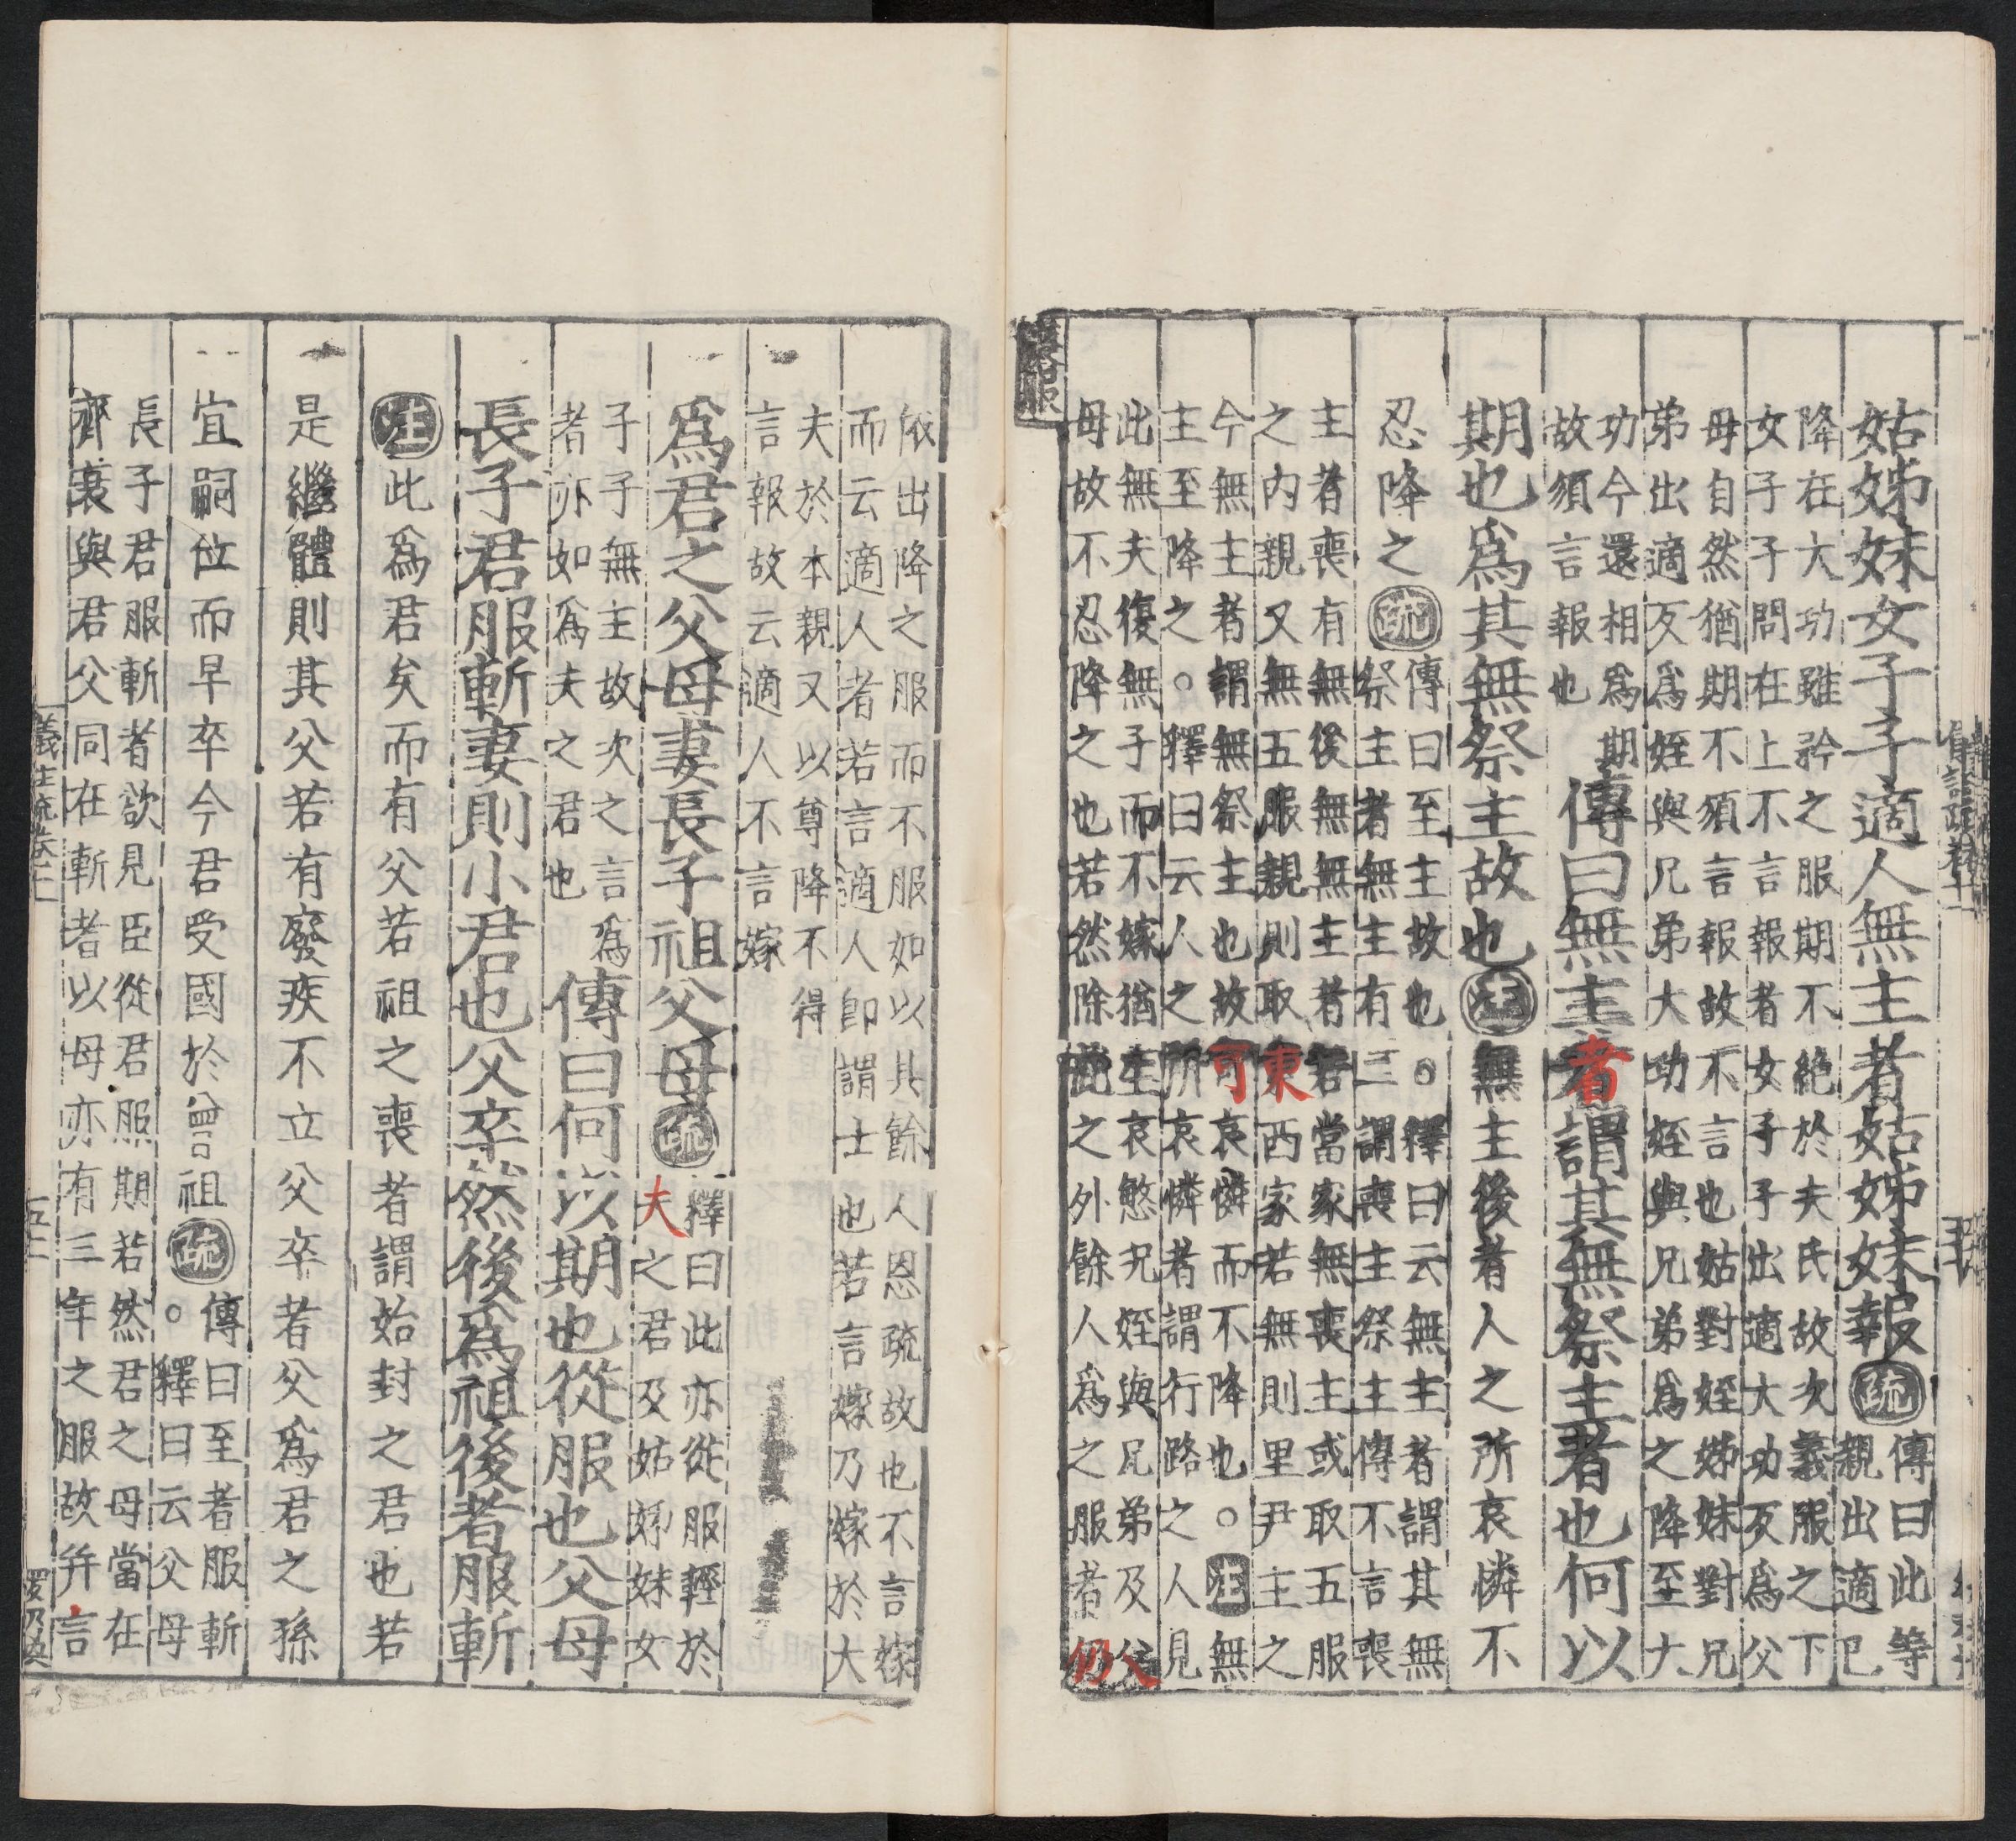 姑姊妹女子子適人無主者姑姊妹報疏傳曰此等
親出適已
降在大功雖矜之服期不絕於夫氏故次義服之下
女子子問在上不言報者女子子出適大功反爲父
母自然猶期不須言報故不言報也姑對姪姊妹對兄
弟出適反爲姪與兄弟大功姪與兄弟爲之降至大
功今還相爲期
故須言報也
傳曰無主者謂其無祭主者也何以
期也爲其無祭主故也注無主後者人之所哀憐不
忍降之疏傳曰至主故也○釋曰云無主者謂其無
祭主者無主有三謂喪主祭主傳不言喪
主者喪有無後無無主者若當家無喪主或取五服
之內親又無五服親則取東西家若無則里尹主之
今無主者謂無祭主也故可哀憐而不降也○注無
主至降之○釋曰云人之所哀憐者謂行路之人見
此無夫復無子而不嫁猶生哀愍况姪與兄弟及父
母故不忍降之也若然除此之外餘人爲之服者仍
喪服
依出降之服而不服如以其餘人恩疏故也不言嫁
而云適人者若言適人即謂士也若言嫁乃嫁於大
夫於本親又以尊降不得
言報故云適人不言嫁
爲君之父母妻長子祖父母疏釋曰此亦從服輕於
夫之君及姑姊妹女
子子無主故次之言爲
者亦如爲夫之君也
傳曰何以期也從服也父母
長子君服斬妻則小君也父卒然後爲祖後者服斬
注此爲君矣而有父若祖之喪者謂始封之君也若
是繼體則其父若有廢疾不立父卒者父爲君之孫
宜嗣位而早卒今君受國於曾祖疏傳曰至者服斬
○釋曰云父母
長子君服斬者欲見臣從君服期若然君之母當在
齊衰與君父同在斬者以母亦有三年之服故并言
義注疏卷十一
五十一